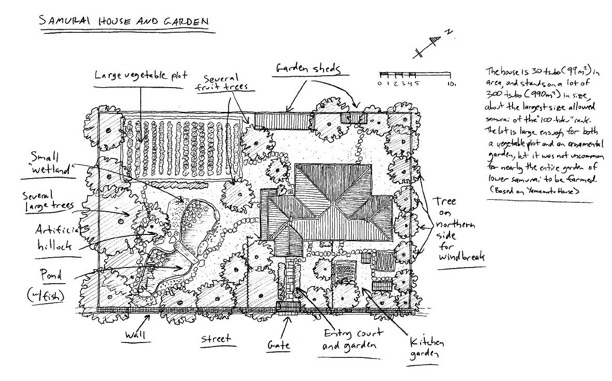 SAMURAI HOUSE AND GARDEN
Large vegetable plot
Several
fruit trees
Garden sheds
N
0 1 2 3 4 5 10m
The house is 30 tsubo (99m²) in
area, and stands on a lot of
300 tsubo (990m²) in size,
about the largest size allowed
samurai of the "100 koku" rank.
The lot is large enough for both
a vegetable plot and an ornamental
garden, but it was not uncommon
for nearly the entire garden of
lower samurai to be farmed.
(Based on House)
Small
wetland
Several
large trees
Artificial
hillock
Pond
(w/fish)
Tree
on
northern
side
for
windbreak
Wall
Street
Gate
Entry court
and garden
Kitchen
garden